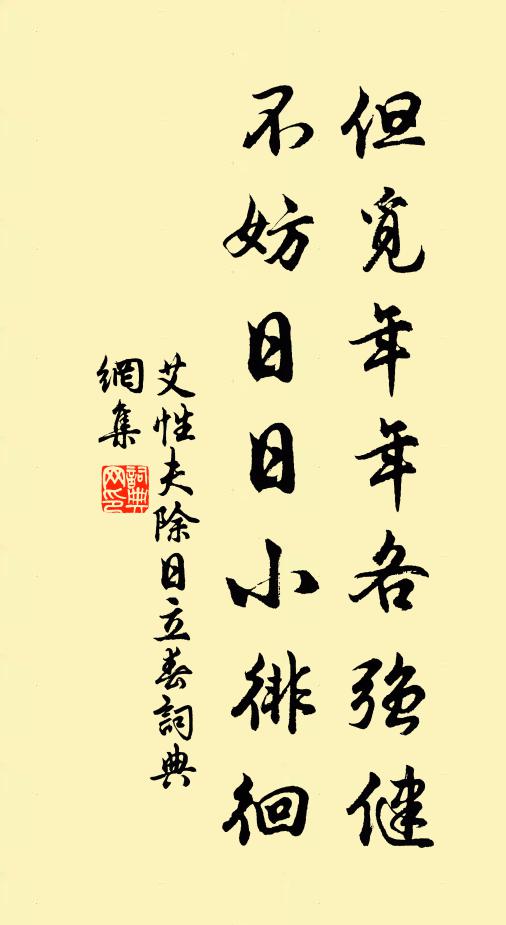 但觅年年各强健
不妨日日小徘徊
艾性夫除日立春詞典
網集
詞典
网印